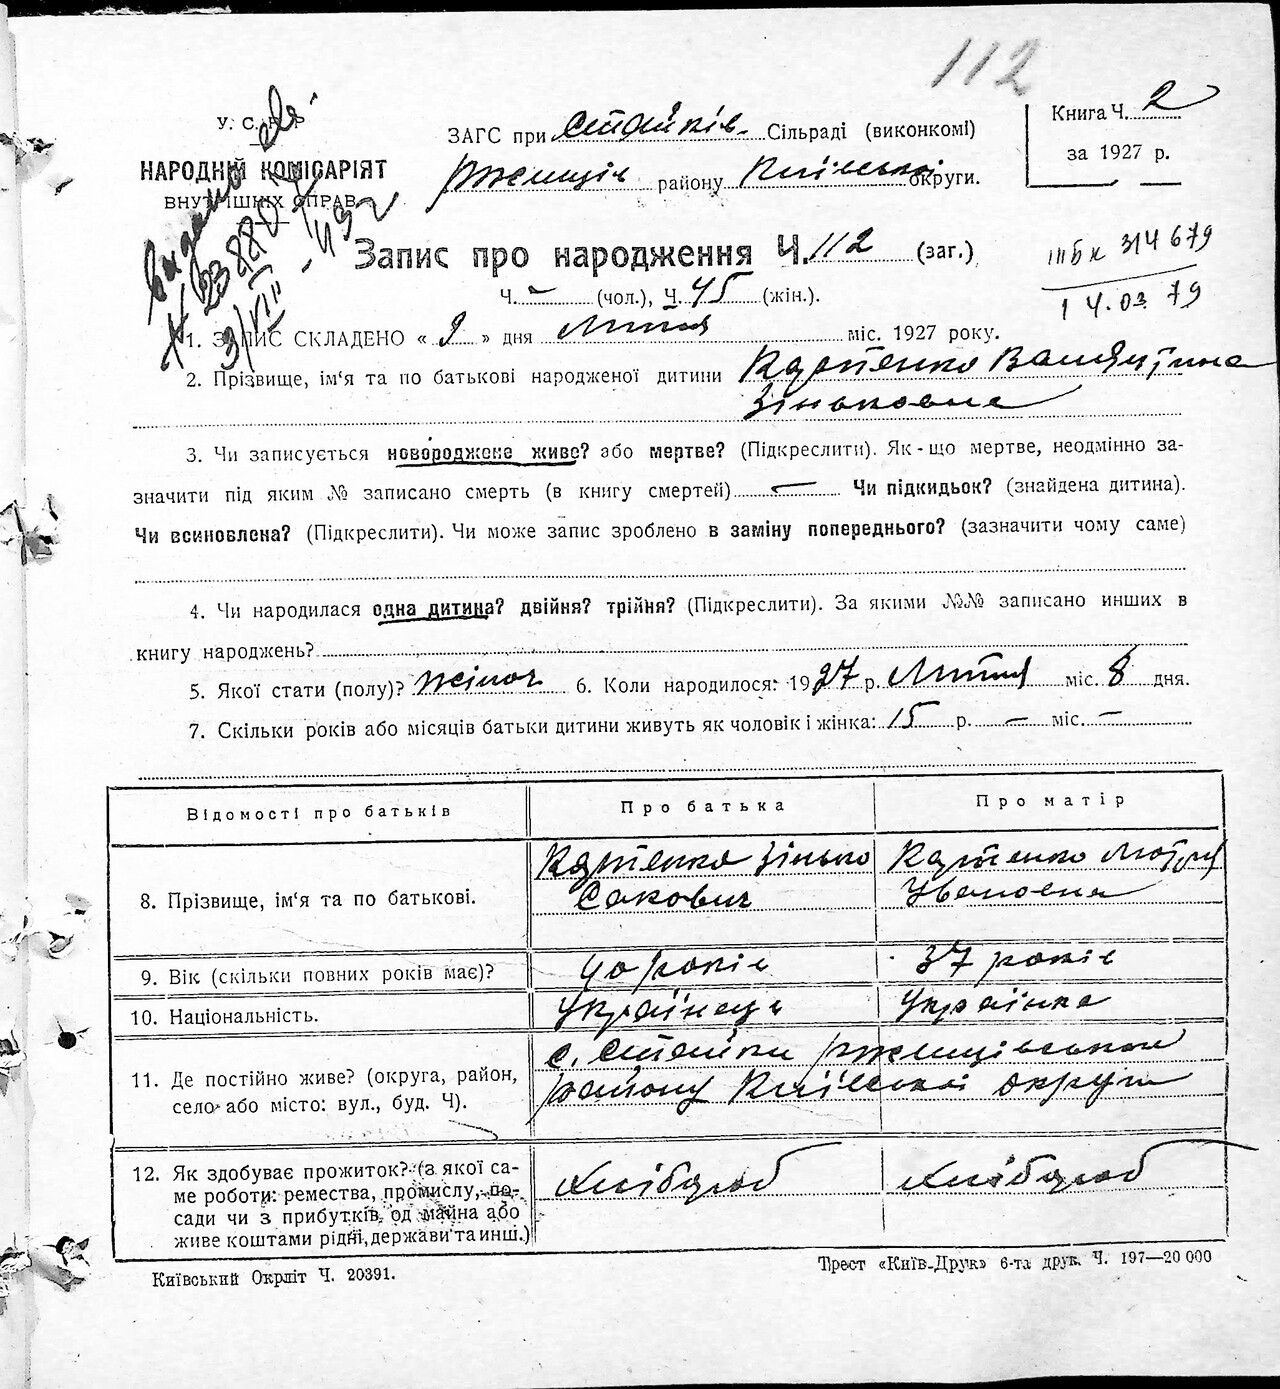 112
У. С. Р. Р.
НАРОДНІЙ КОМІСАРІЯТ
ВНУТРІШНІХ СПРАВ
ЗАГС при Стайків. Сільраді (виконкомі)
Ржищів району Київської округи.
Книга Ч. 2
за 1927 р.
видано
3/VIII - 49 г
Запис про народження Ч. 112 (заг.)
Ч. – (чол.), Ч. 45 (жін.).
314679
14.03 79
1. ЗАПИС СКЛАДЕНО « 9 » дня Липня міс. 1927 року.
2. Прізвище, ім‘я та по батькові народженої дитини Карпенко Валентина
Зіньковна
3. Чи записується новороджене живе? або мертве? (Підкреслити). Як - що мертве, неодмінно за-
значити під яким № записано смерть (в книгу смертей) – Чи підкидьок? (знайдена дитина).
Чи всиновлена? (Підкреслити). Чи може запис зроблено в заміну попереднього? (зазначити чому саме)
4. Чи народилася одна дитина? двійня? трійня? (Підкреслити). За якими №№ записано инших в
книгу народжень?
5. Якої стати (полу)? жіноч 6. Коли народилося: 1927 р. Липня міс. 8 дня.
7. Скільки років або місяців батьки дитини живуть як чоловік і жінка: 15 р. – міс. –
Відомості про батьків Про батька Про матір
8. Прізвище, ім‘я та по батькові. Карпенко Зінько Карпенко Мотря
Сакович Ивановна
9. Вік (скільки повних років має)? 40 років 37 років
10. Національність. Українець Українка
11. Де постійно живе? (округа, район, с. Стайки Ржищівського
село або місто: вул., буд. Ч). району Київської округи
12. Як здобуває прожиток? (з якої са- Хлібороб Хлібороб
ме роботи: ремества, промислу, по-
сади чи з прибутків од майна або
живе коштами рідні, держави та инш.)
Київський Окрліт Ч. 20391.
Трест «Київ-Друк» 6-та друк. Ч. 197—20 000